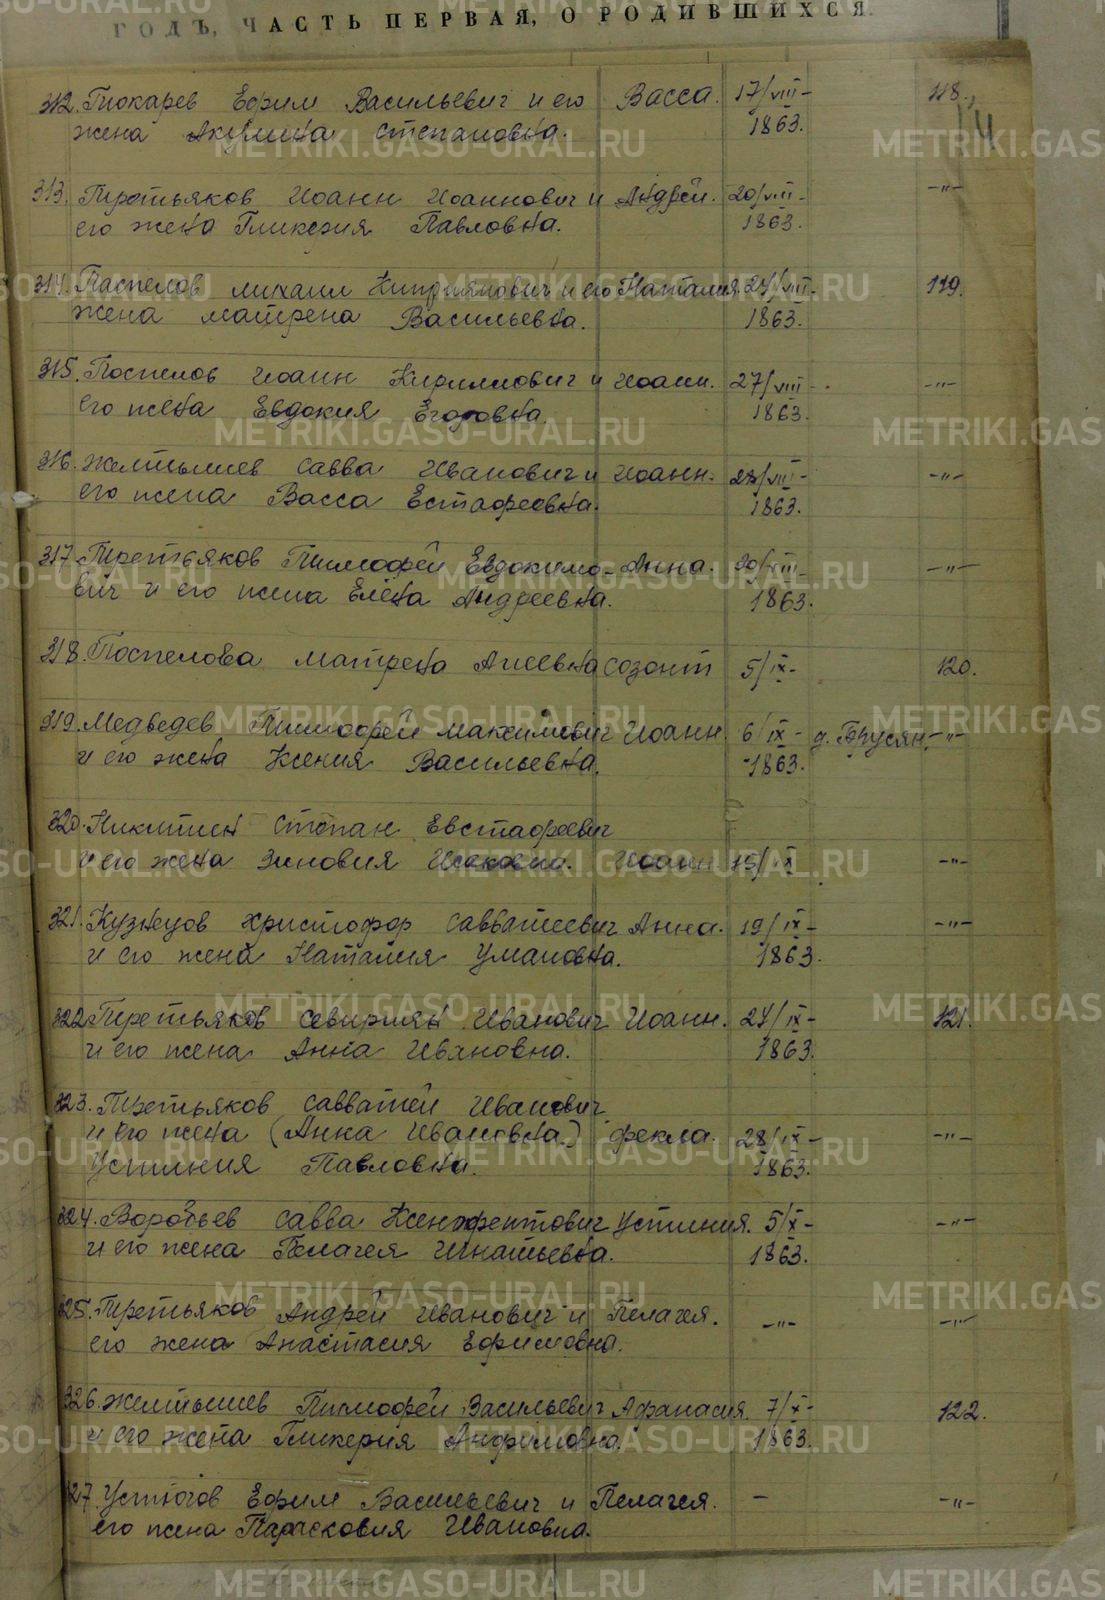 ГОДЪ, ЧАСТЬ ПЕРВАЯ, О РОДИВШИХСЯ.
312. Тюкарев Ефрим Васильевич и его Васса. 17/VIII- 118.
жена Акулина Степановна. 1863. 14
313. Третьяков Иоанн Иоаннович и Андрей. 20/VIII- -"-
его жена Гликерия Павловна. 1863.
314. Паспелов Михаил Киприянович и его Наталия 24/VIII- 119.
жена Матрена Васильевна. 1863.
315. Поспелов Иоанн Кириллович и Иоанн. 27/VIII- -"-
его жена Евдокия Егоровна. 1863.
316. Желтышев Савва Иванович и Иоанн. 28/VIII- -"-
его жена Васса Естафеевна. 1863.
317. Третьяков Тимофей Евдокимо- Анна. 30/VIII- -"-
вич и его жена Елена Андреевна. 1863.
318. Поспелова Матрена Агеевна Созонт 5/IX- 120.
319. Медведев Тимофей Максимович Иоанн. 6/IX- д. Брусян. -"-
и его жена Ксения Васильевна. 1863.
320. Никитин Степан Евстафеевич
и его жена Зиновия Исаковна. Иоанн 15/IX -"-
321. Кузнецов Христофор Савватеевич Анна. 19/IX- -"-
и его жена Наталия Умановна. 1863.
322. Третьяков Севириян Иванович Иоанн. 24/IX- 121.
и его жена Анна Ивановна. 1863.
323. Третьяков Савватей Иванович
и его жена (Анна Ивановна) Фекла. 28/IX- -"-
Устиния Павловна. 1863.
324. Воробьев Савва Ксенофентович Устиния. 5/X- -"-
и его жена Пелагея Игнатьевна. 1863.
325. Третьяков Андрей Иванович и Пелагея. -"- -"-
его жена Анастасия Ефимовна.
326. Желтышев Тимофей Васильевич Афанасия. 7/X- 122.
и его жена Гликерия Анфимовна. 1863.
327. Устюгов Ефим Васильевич и Пелагея. - -"-
его жена Парасковия Ивановна.
METRIKI.GASO-URAL.RU